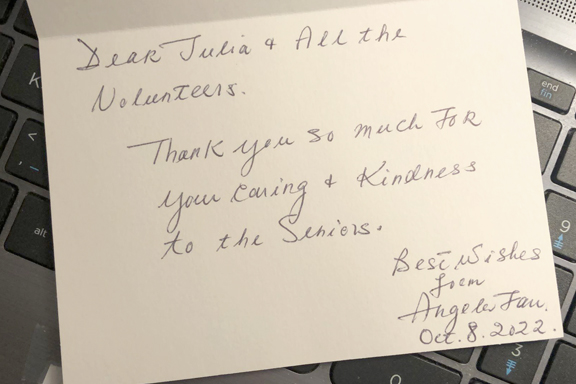 Dear Julia & All the
Volunteers.
Thank you so much For
your caring & Kindness
to the Seniors.
Best Wishes
from
Angela Fan.
Oct. 8. 2022.
K
<
alt
end
fin
9
3